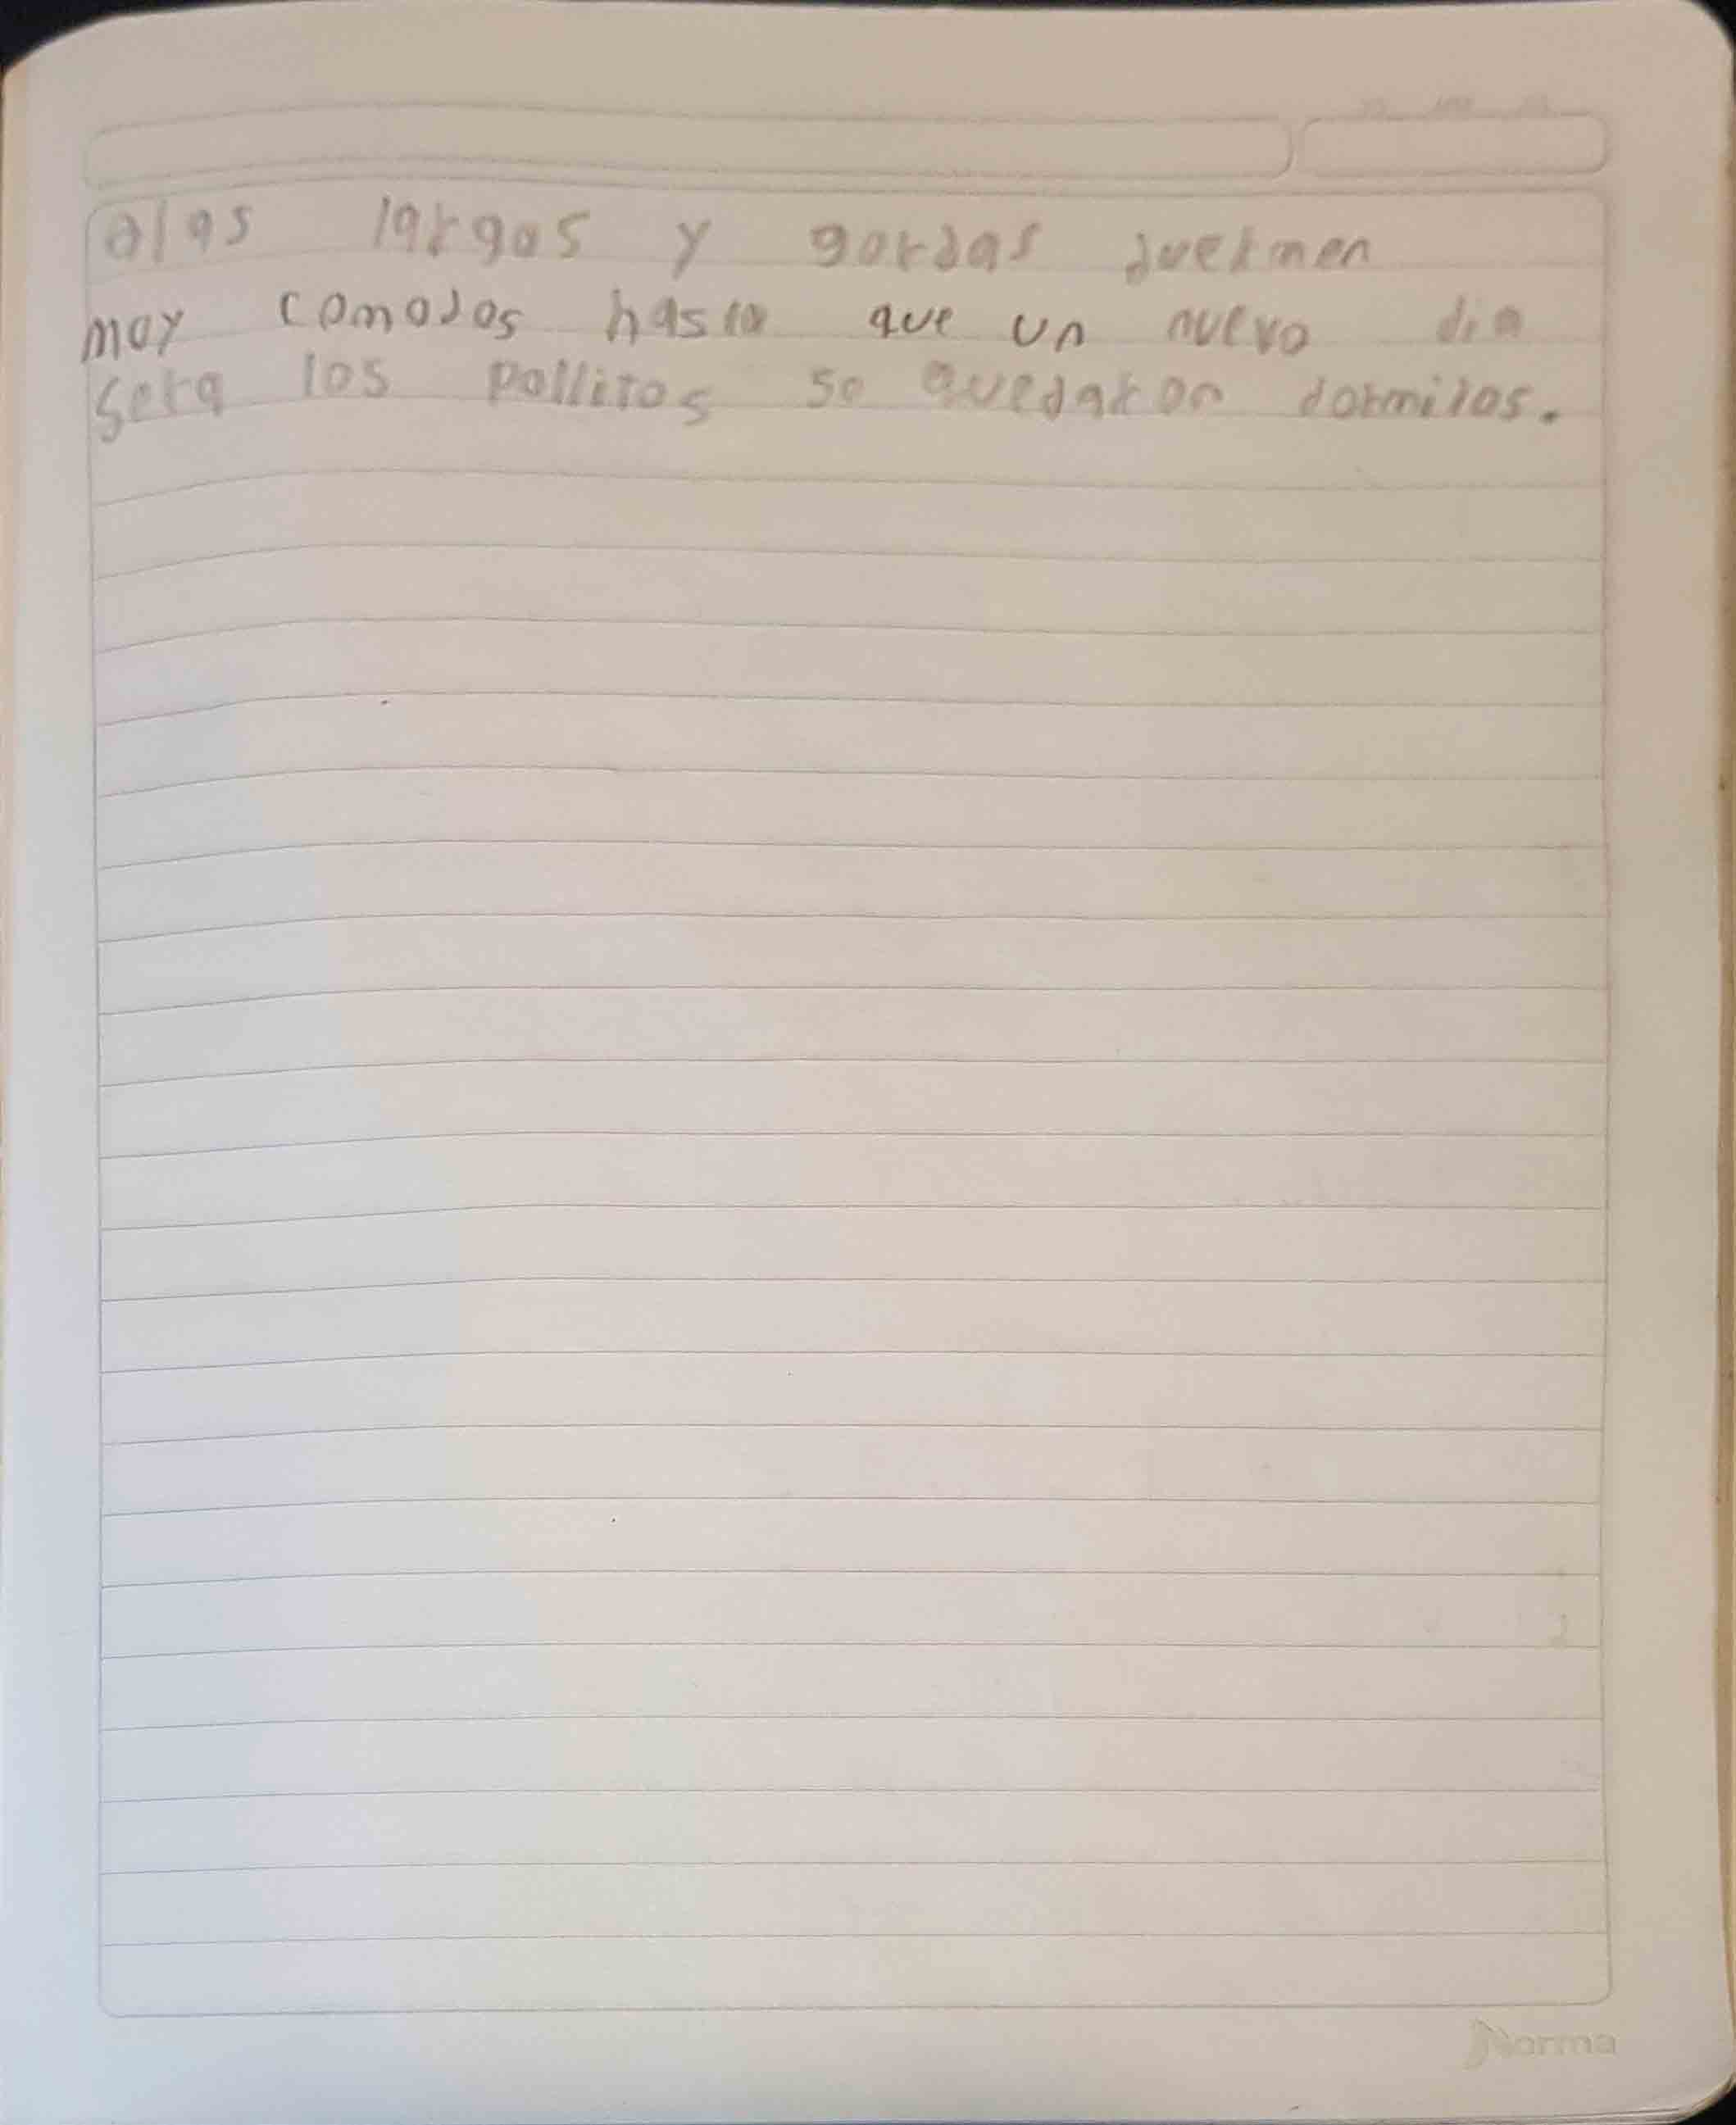 alas largas y gordas duermen
moy comodos hasta que un nuevo dia
sera los pollitos se quedaron dormidos.
Norma